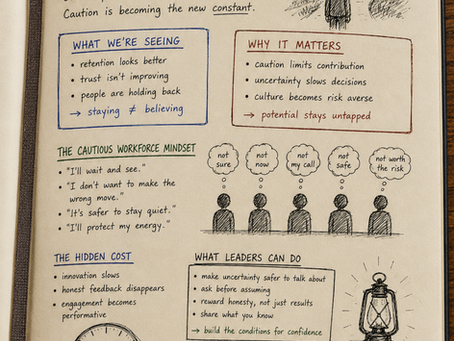 Caution is becoming the new constant.
WHAT WE'RE SEEING
• retention looks better
• trust isn't improving
• people are holding back
→ staying ≠ believing
WHY IT MATTERS
• caution limits contribution
• uncertainty slows decisions
• culture becomes risk averse
→ potential stays untapped
THE CAUTIOUS WORKFORCE MINDSET
• "I'll wait and see."
• "I don't want to make the
wrong move."
• "It's safer to stay quiet."
• "I'll protect my energy."
not
sure
not
now
not
my call
not
safe
not worth
the risk
THE HIDDEN COST
• innovation slows
• honest feedback disappears
• engagement becomes
performative
WHAT LEADERS CAN DO
• make uncertainty safer to talk about
• ask before assuming
• reward honesty, not just results
• share what you know
→ build the conditions for confidence